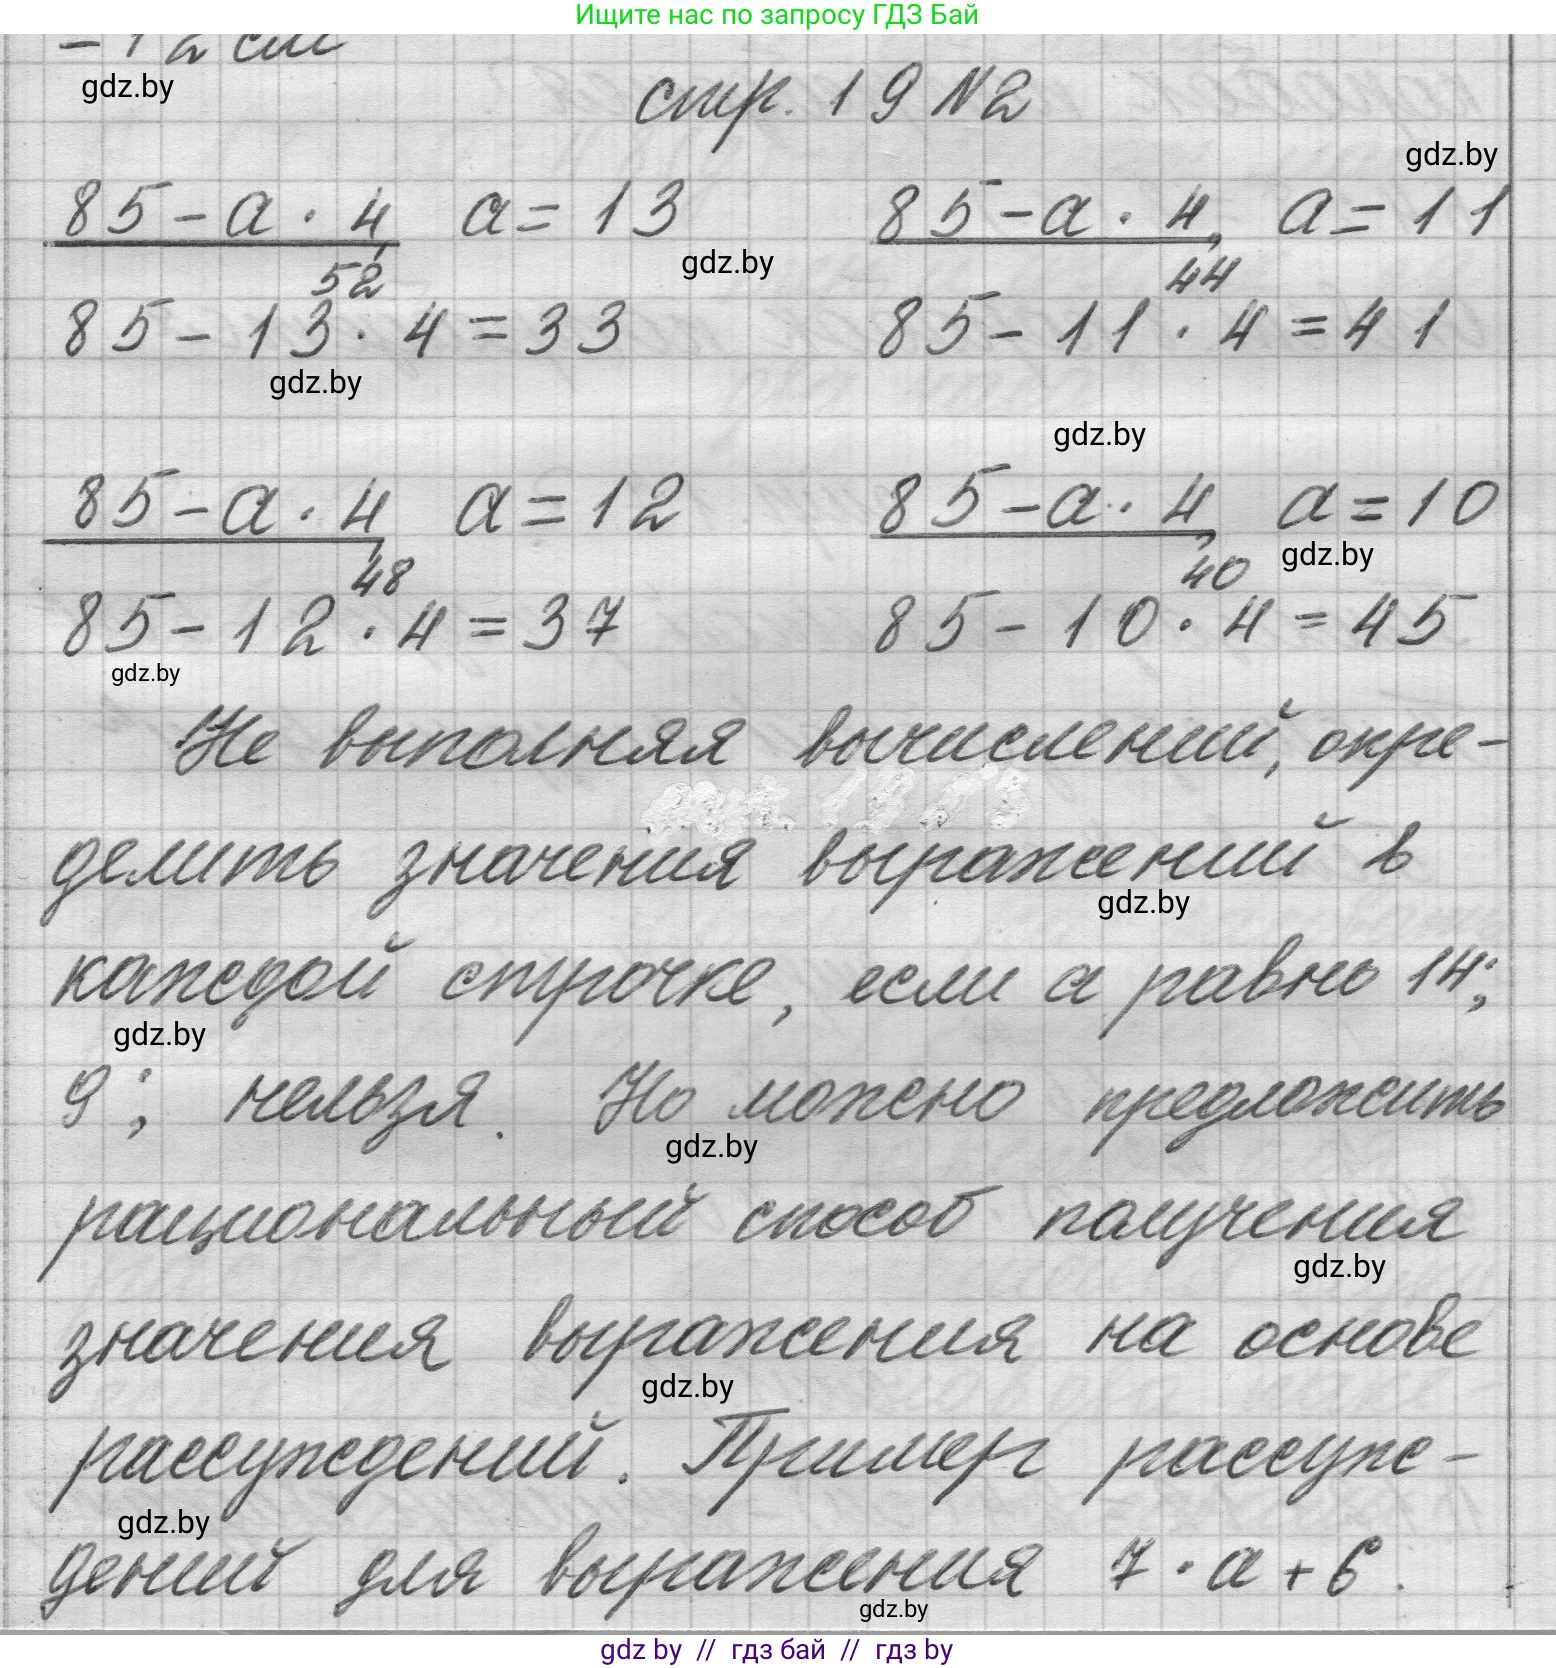 Ищите нас по запросу ГДЗ Бай
- 12 см
gdz.by
стр. 19 №2
gdz.by
85 - а · 4, а = 13
85 - а · 4, а = 11
gdz.by
52
44
85 - 13 · 4 = 33
85 - 11 · 4 = 41
gdz.by
gdz.by
85 - а · 4, а = 12
85 - а · 4, а = 10
gdz.by
48
40
85 - 12 · 4 = 37
85 - 10 · 4 = 45
gdz.by
Не выполняя вычислений, опре-
делить значения выражений в
gdz.by
каждой строчке, если а равно 14;
gdz.by
9; нельзя. Но можно предложить
gdz.by
рациональный способ получения
gdz.by
значения выражения на основе
gdz.by
рассуждений. Пример рассуж-
gdz.by
дений для выражения 7 · а + 6.
gdz.by
gdz by // гдз бай // гдз by